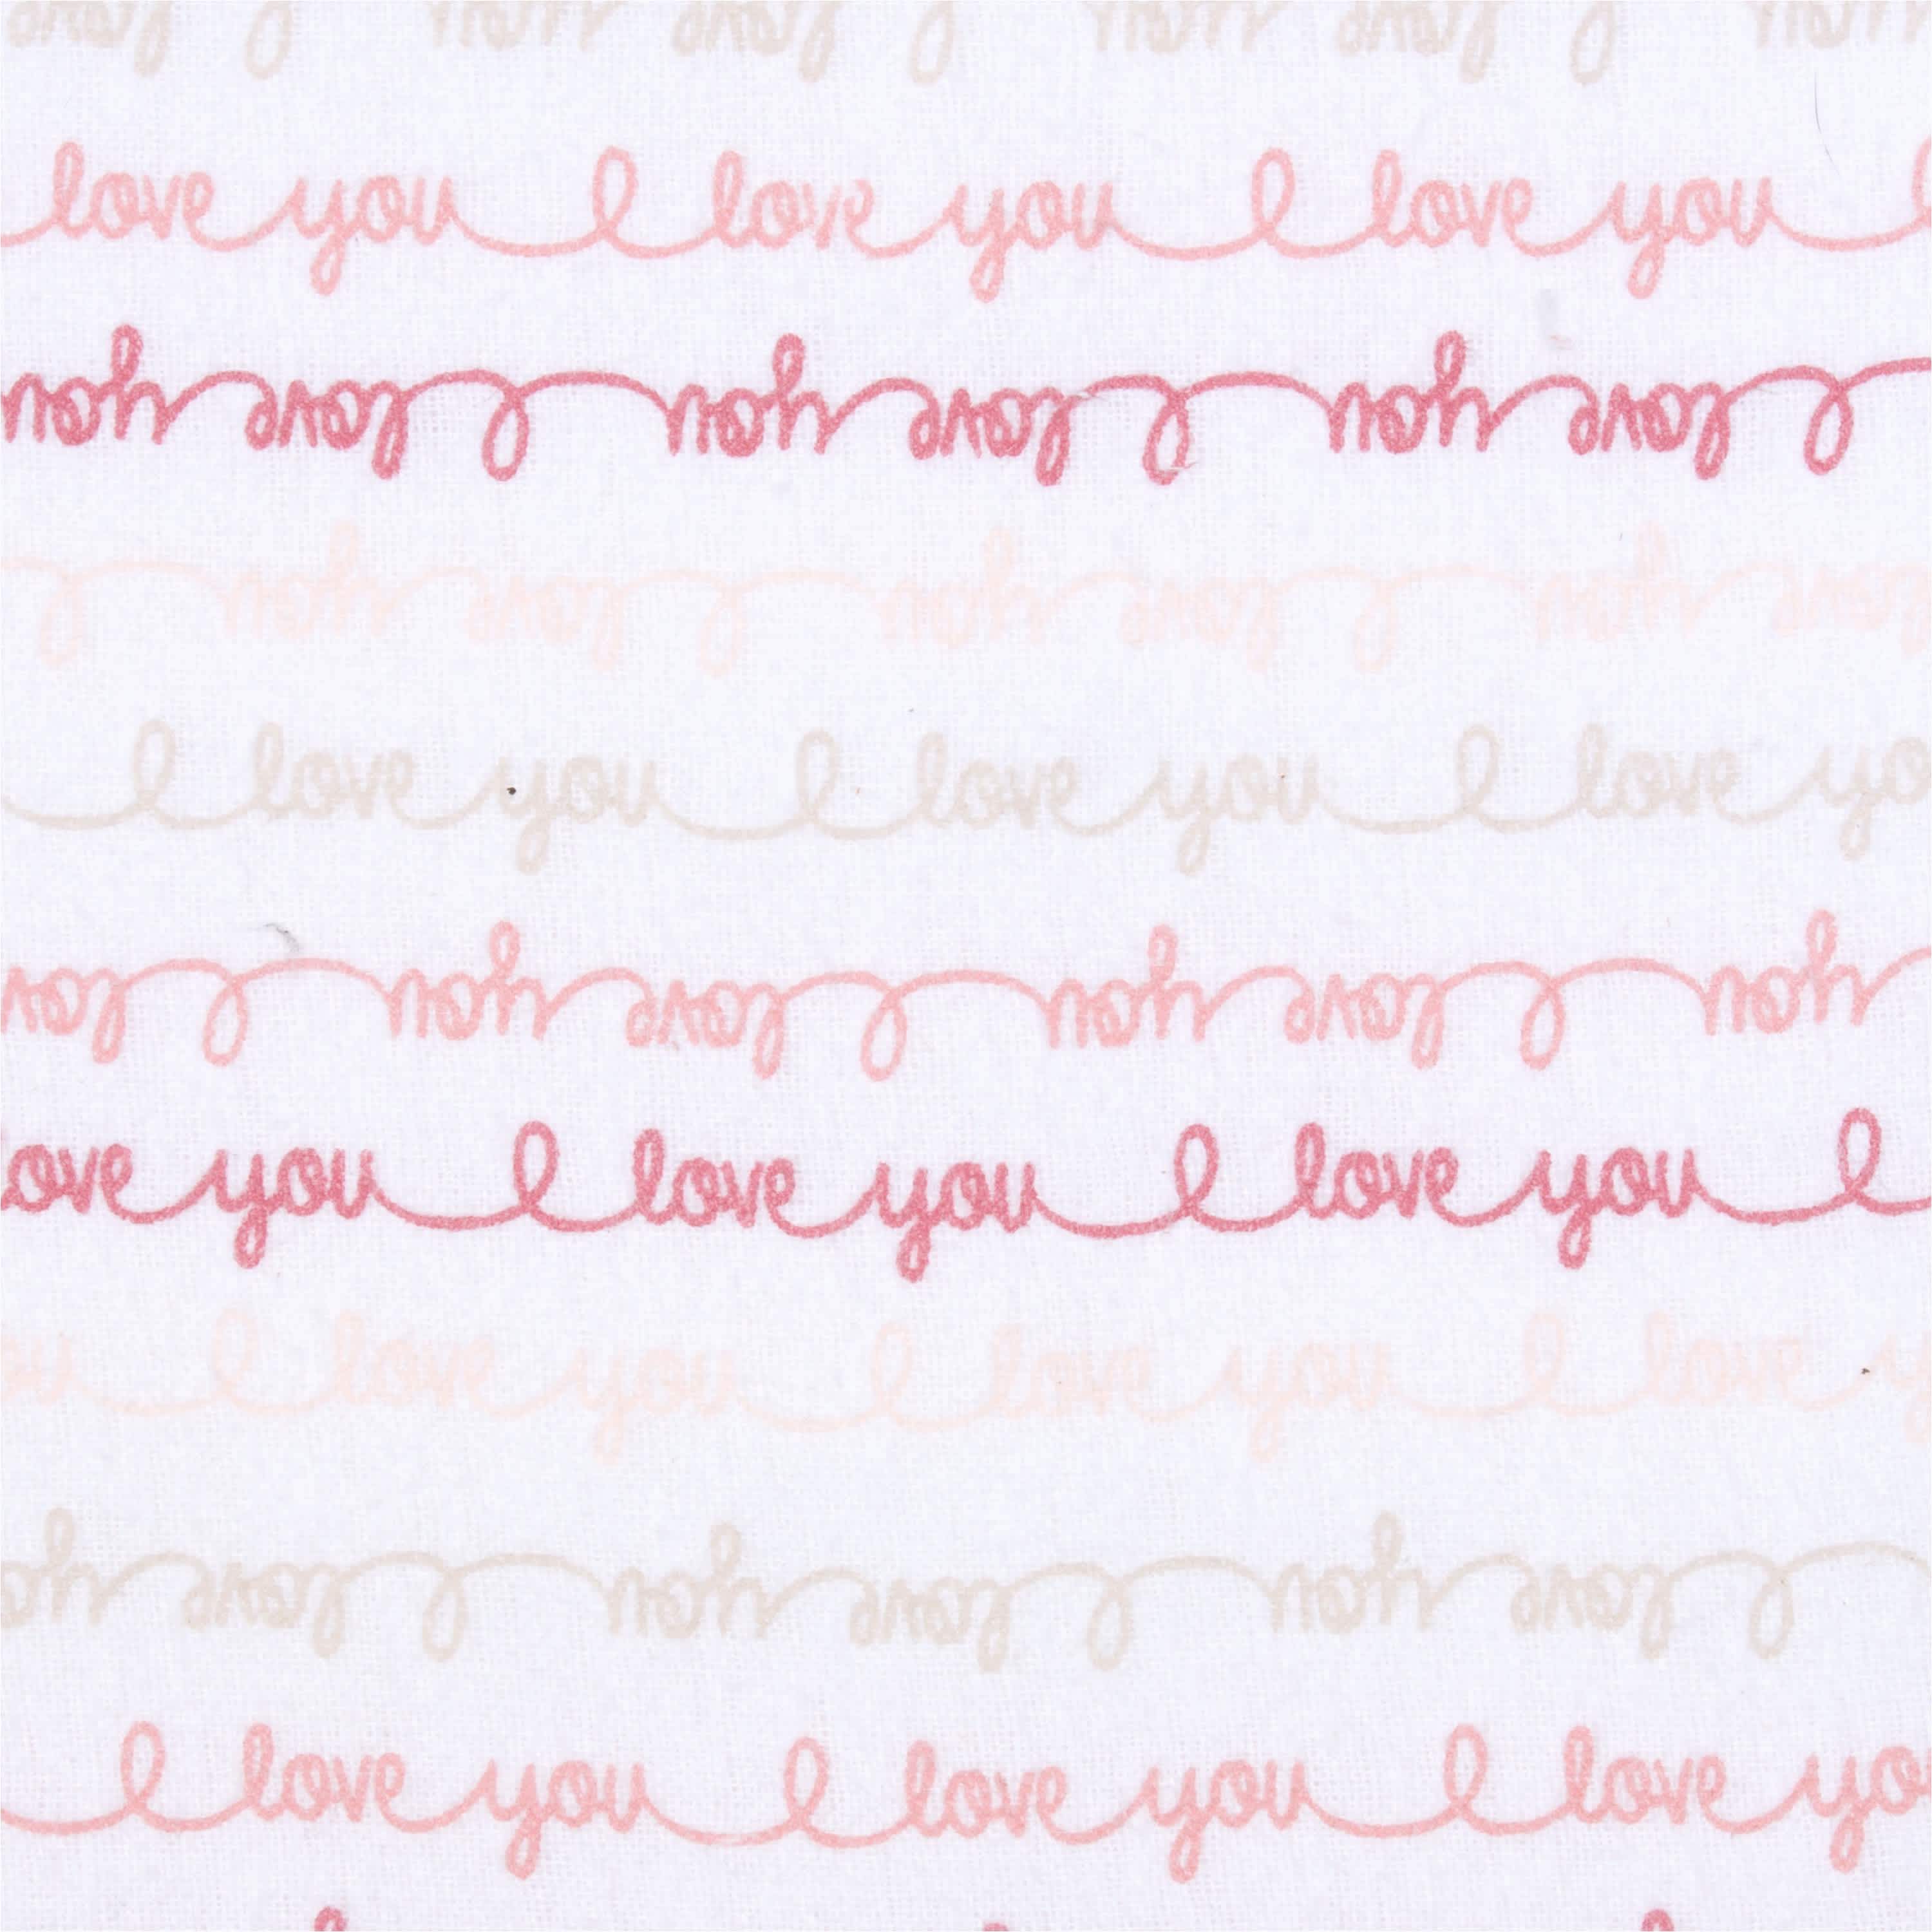 you I love you I love you I love
love you I love you I love you
I love you I love you I love you
love you I love you I love you I
I love you I love you I love yo
you I love you I love you I lov
ove you I love you I love you I
ou I love you I love you I love y
I love you I love you I love yo
I love you I love you I love yo